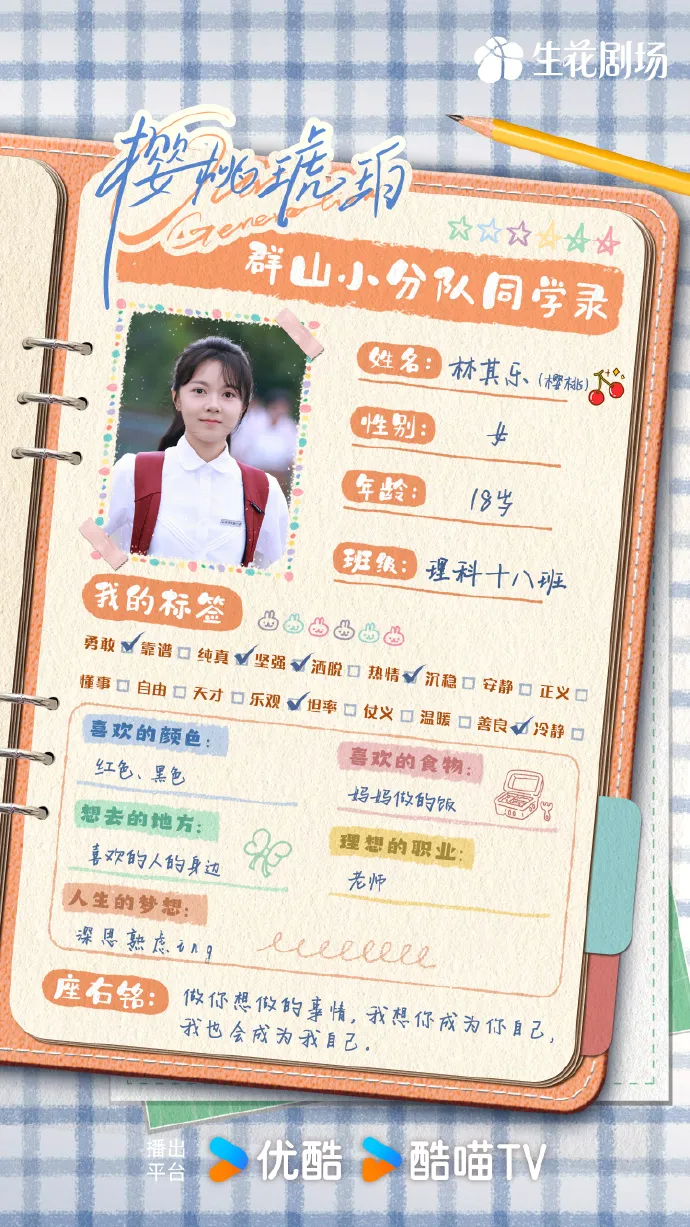 生花剧场
樱桃琥珀
Generation
群山小分队同学录
姓名: 林其乐(樱桃)
性别: 女
年龄: 18岁
班级: 理科十八班
我的标签
勇敢 靠谱 纯真 坚强 洒脱 热情 沉稳 安静 正义
懂事 自由 天才 乐观 坦率 仗义 温暖 善良 冷静
喜欢的颜色:
红色、黑色
喜欢的食物:
妈妈做的饭
想去的地方:
喜欢的人的身边
理想的职业:
老师
人生的梦想:
深思熟虑ing
座右铭: 做你想做的事情,我想你成为你自己,
我也会成为我自己.
播出
平台
优酷 酷喵TV